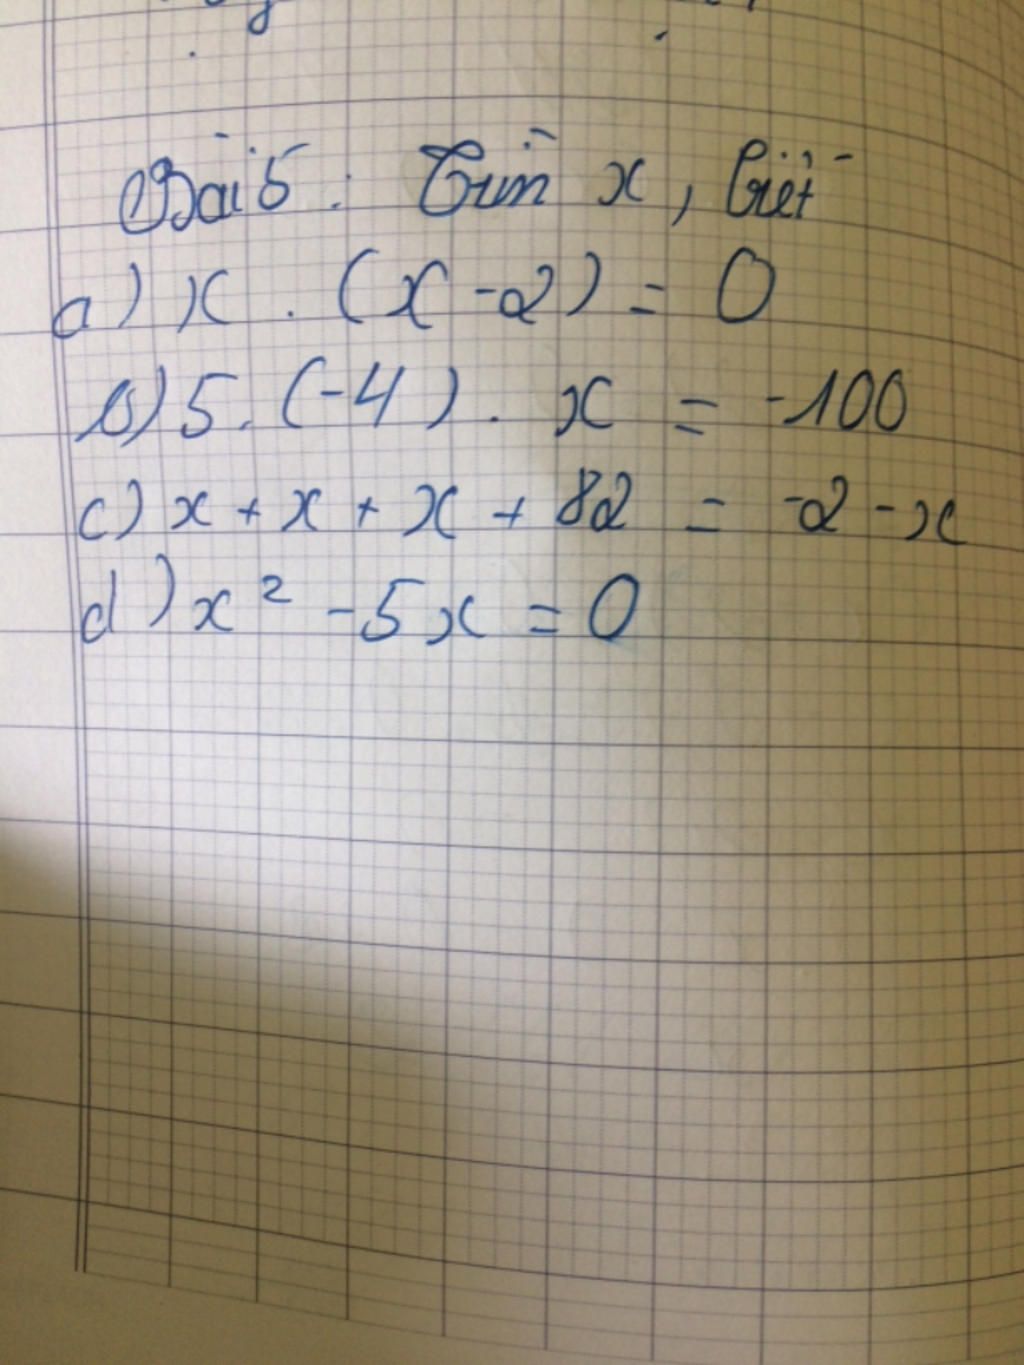 Bài 5 : Tìm x, biết
a) x . (x - 2) = 0
b) 5 . (-4) . x = -100
c) x + x + x + 82 = -2 - x
d) x² - 5x = 0